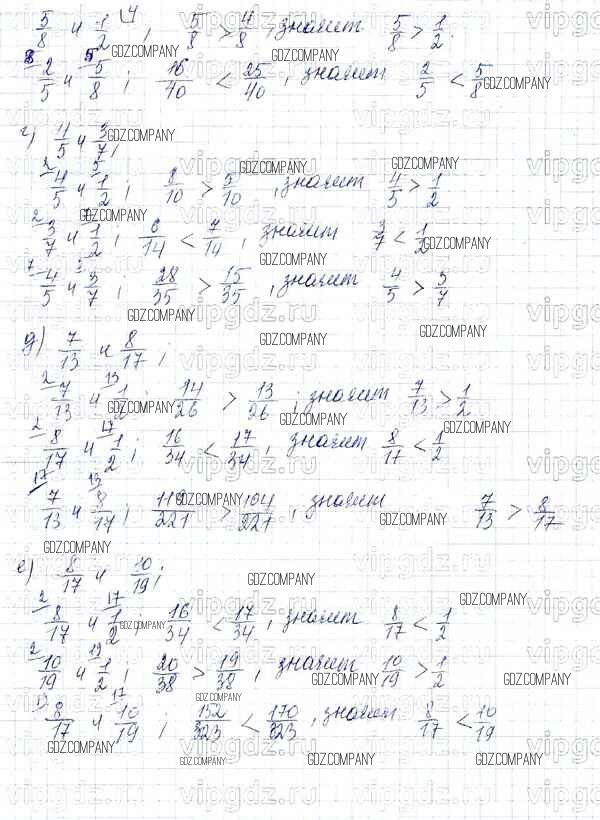 5/8 и 1/2 4; 5/8 > 4/8, значит 5/8 > 1/2.
8 5
2/5 и 5/8; 16/40 < 25/40, значит 2/5 < 5/8
г) 4/5 и 3/7;
2 5
4/5 и 1/2; 8/10 > 5/10, значит 4/5 > 1/2
2 7
3/7 и 1/2; 6/14 < 7/14, значит 3/7 < 1/2
7 5
4/5 и 3/7; 28/35 > 15/35, значит 4/5 > 3/7
д) 7/13 и 8/17;
2 13
7/13 и 1/2; 14/26 > 13/26; значит 7/13 > 1/2
2 17
8/17 и 1/2; 16/34 < 17/34, значит 8/17 < 1/2
17 13
7/13 и 8/17; 119/221 > 104/221, значит 7/13 > 8/17
е) 8/17 и 10/19;
2 17
8/17 и 1/2; 16/34 < 17/34, значит 8/17 < 1/2
2 19
10/19 и 1/2; 20/38 > 19/38, значит 10/19 > 1/2
19 17
8/17 и 10/19; 152/323 < 170/323, значит 8/17 < 10/19
GDZ.COMPANY
vipgdz.ru